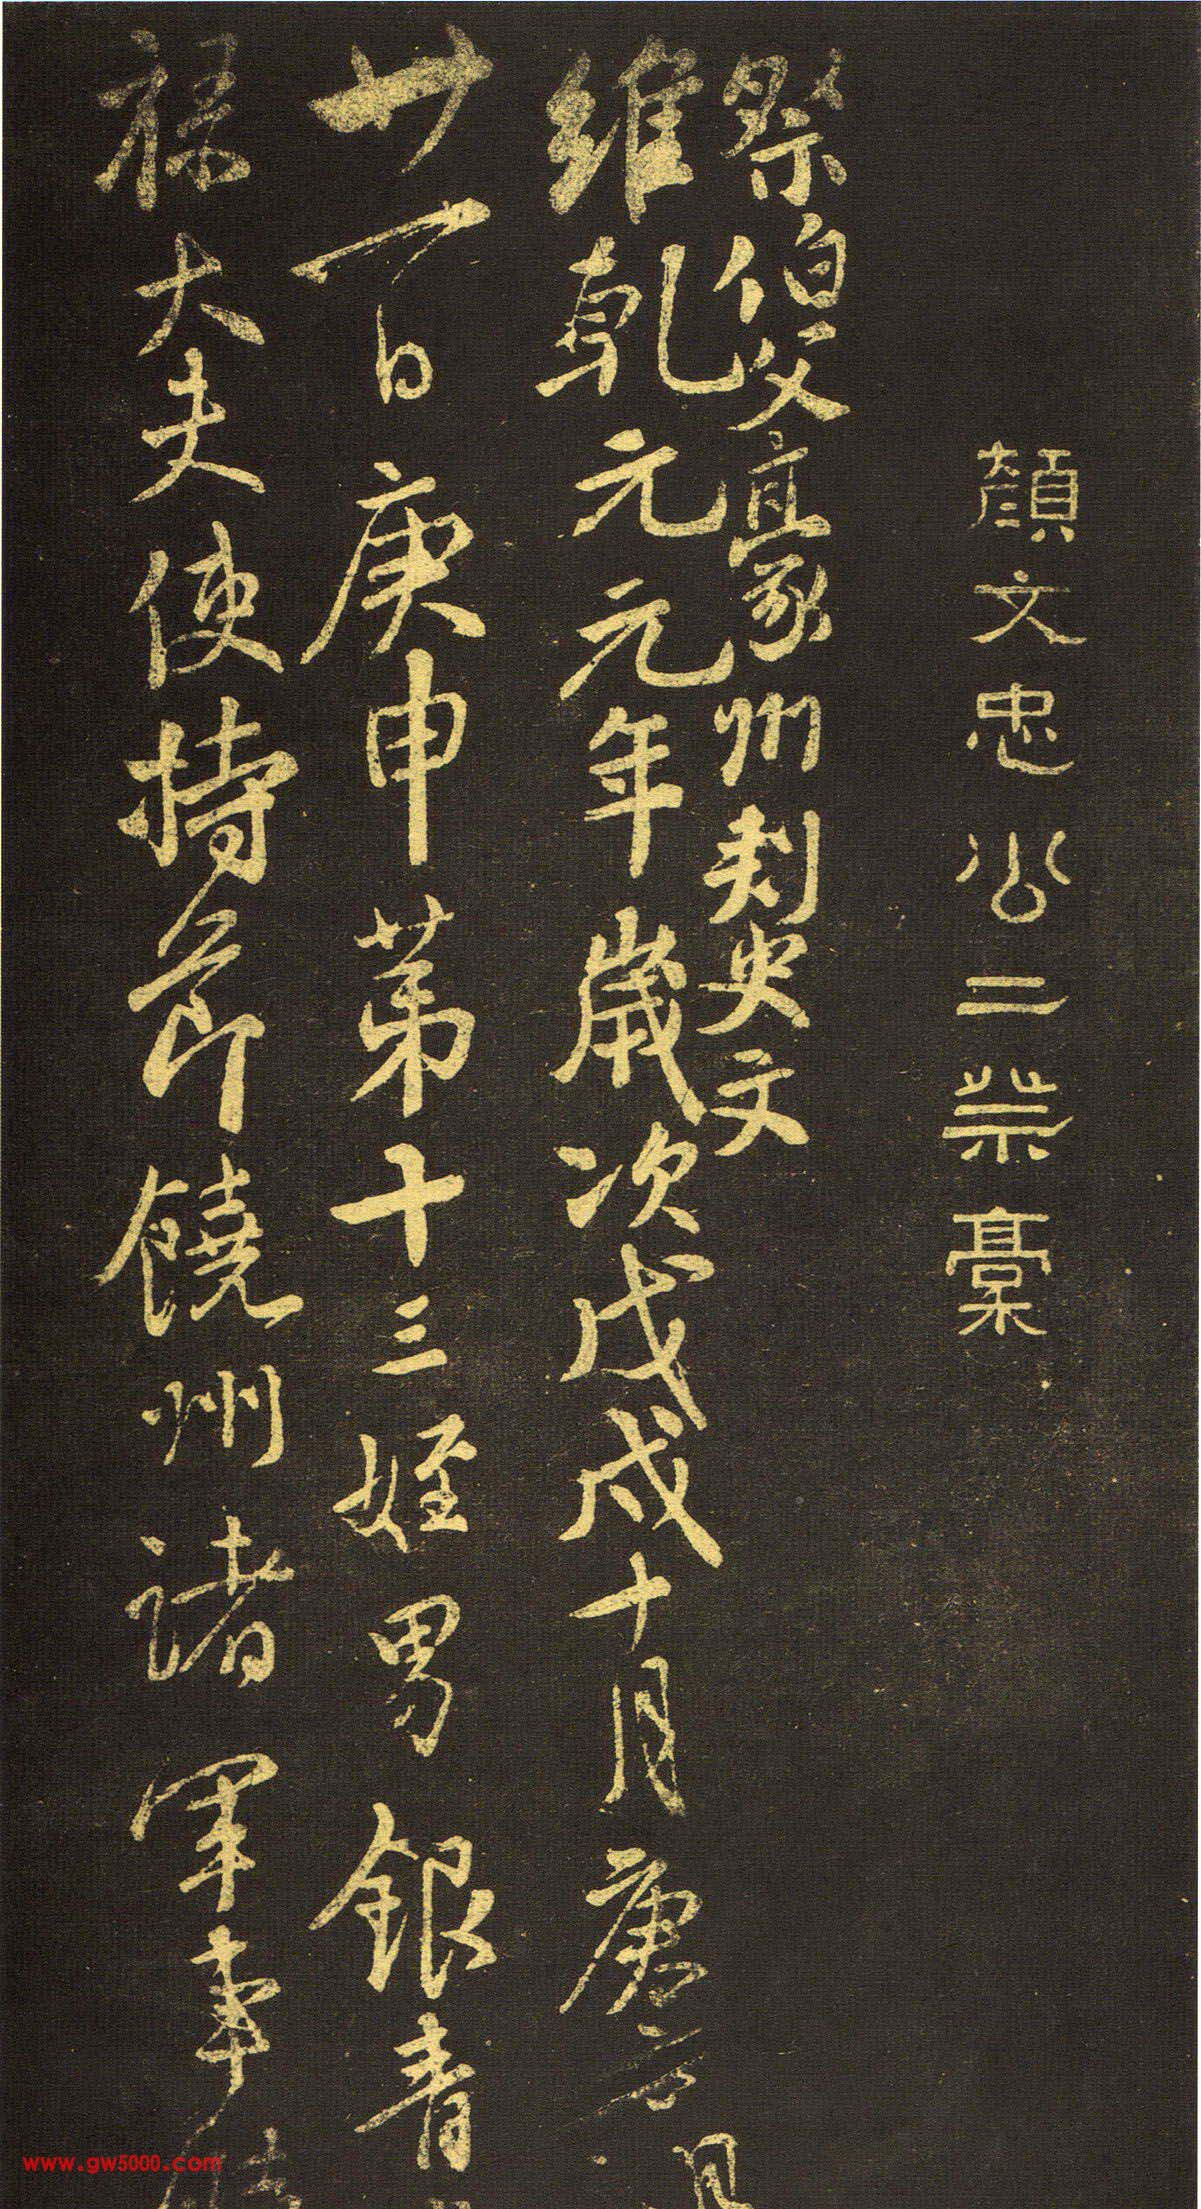 顏文忠公二祭稾
祭伯父豪州刺史文
維乾元元年歲次戊戌十月庚
廿一日庚申苐十三姪男銀青
祿大夫使持節饒州諸軍事
www.gw5000.com